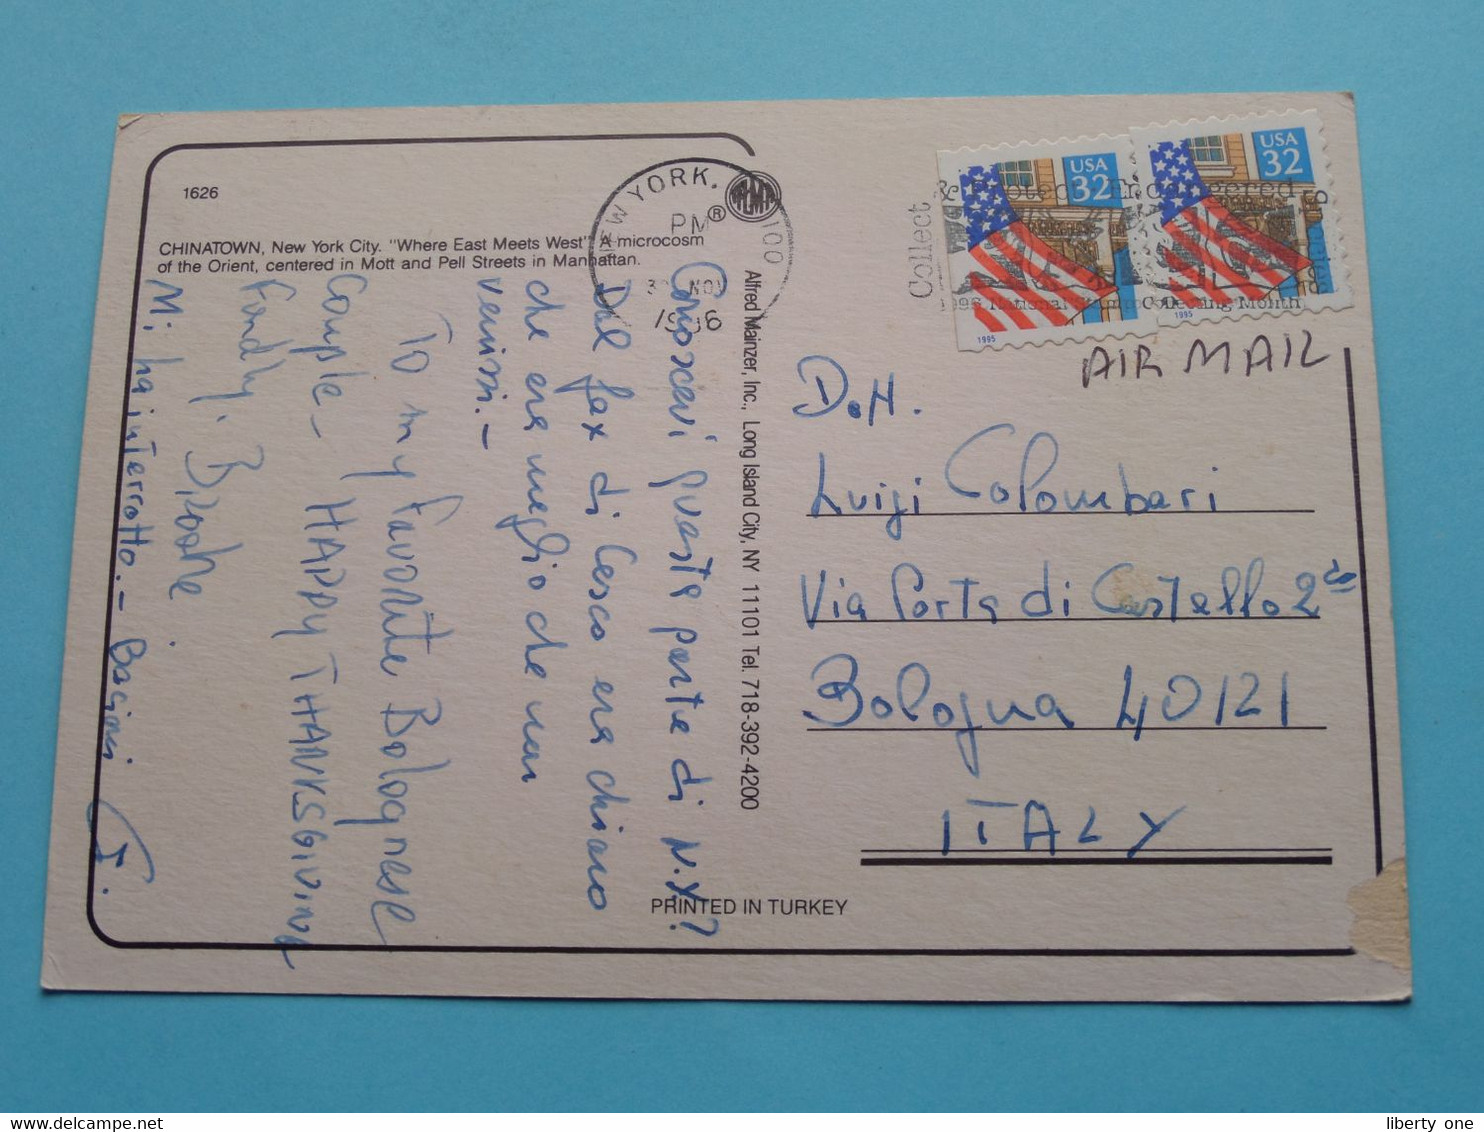 1626
CHINATOWN, New York City. "Where East Meets West". A microcosm
of the Orient, centered in Mott and Pell Streets in Manhattan.
Conoscevi questa parte di N.Y?
Dal fax di Cesco era chiaro
che era meglio che non
venissi. -
To my favorite Bolognese
Couple - HAPPY THANKSGIVING
Fondly,
Mi ha interrotto. - Bacioni
Alfred Mainzer, Inc., Long Island City, NY 11101 Tel. 718-392-4200
PRINTED IN TURKEY
NEW YORK, 100
PM
NOV
1996
Collect & Protect Endangered
1996 National Stamp Collecting Month
USA
32
1995
USA
32
1995
AIR MAIL
Dott.
Luigi Colombari
Via Porta di Castello 2
Bologna 40121
ITALY
liberty one